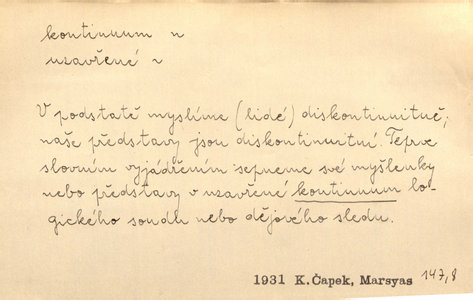 kontinuum n
uzavřené ~
V podstatě myslíme (lidé) diskontinuitně;
naše představy jsou diskontinuitní. Teprve
slovním vyjádřením sepneme své myšlenky
nebo představy v uzavřené kontinuum lo-
gického soudu nebo dějového sledu.
1931 K.Čapek, Marsyas 147,8